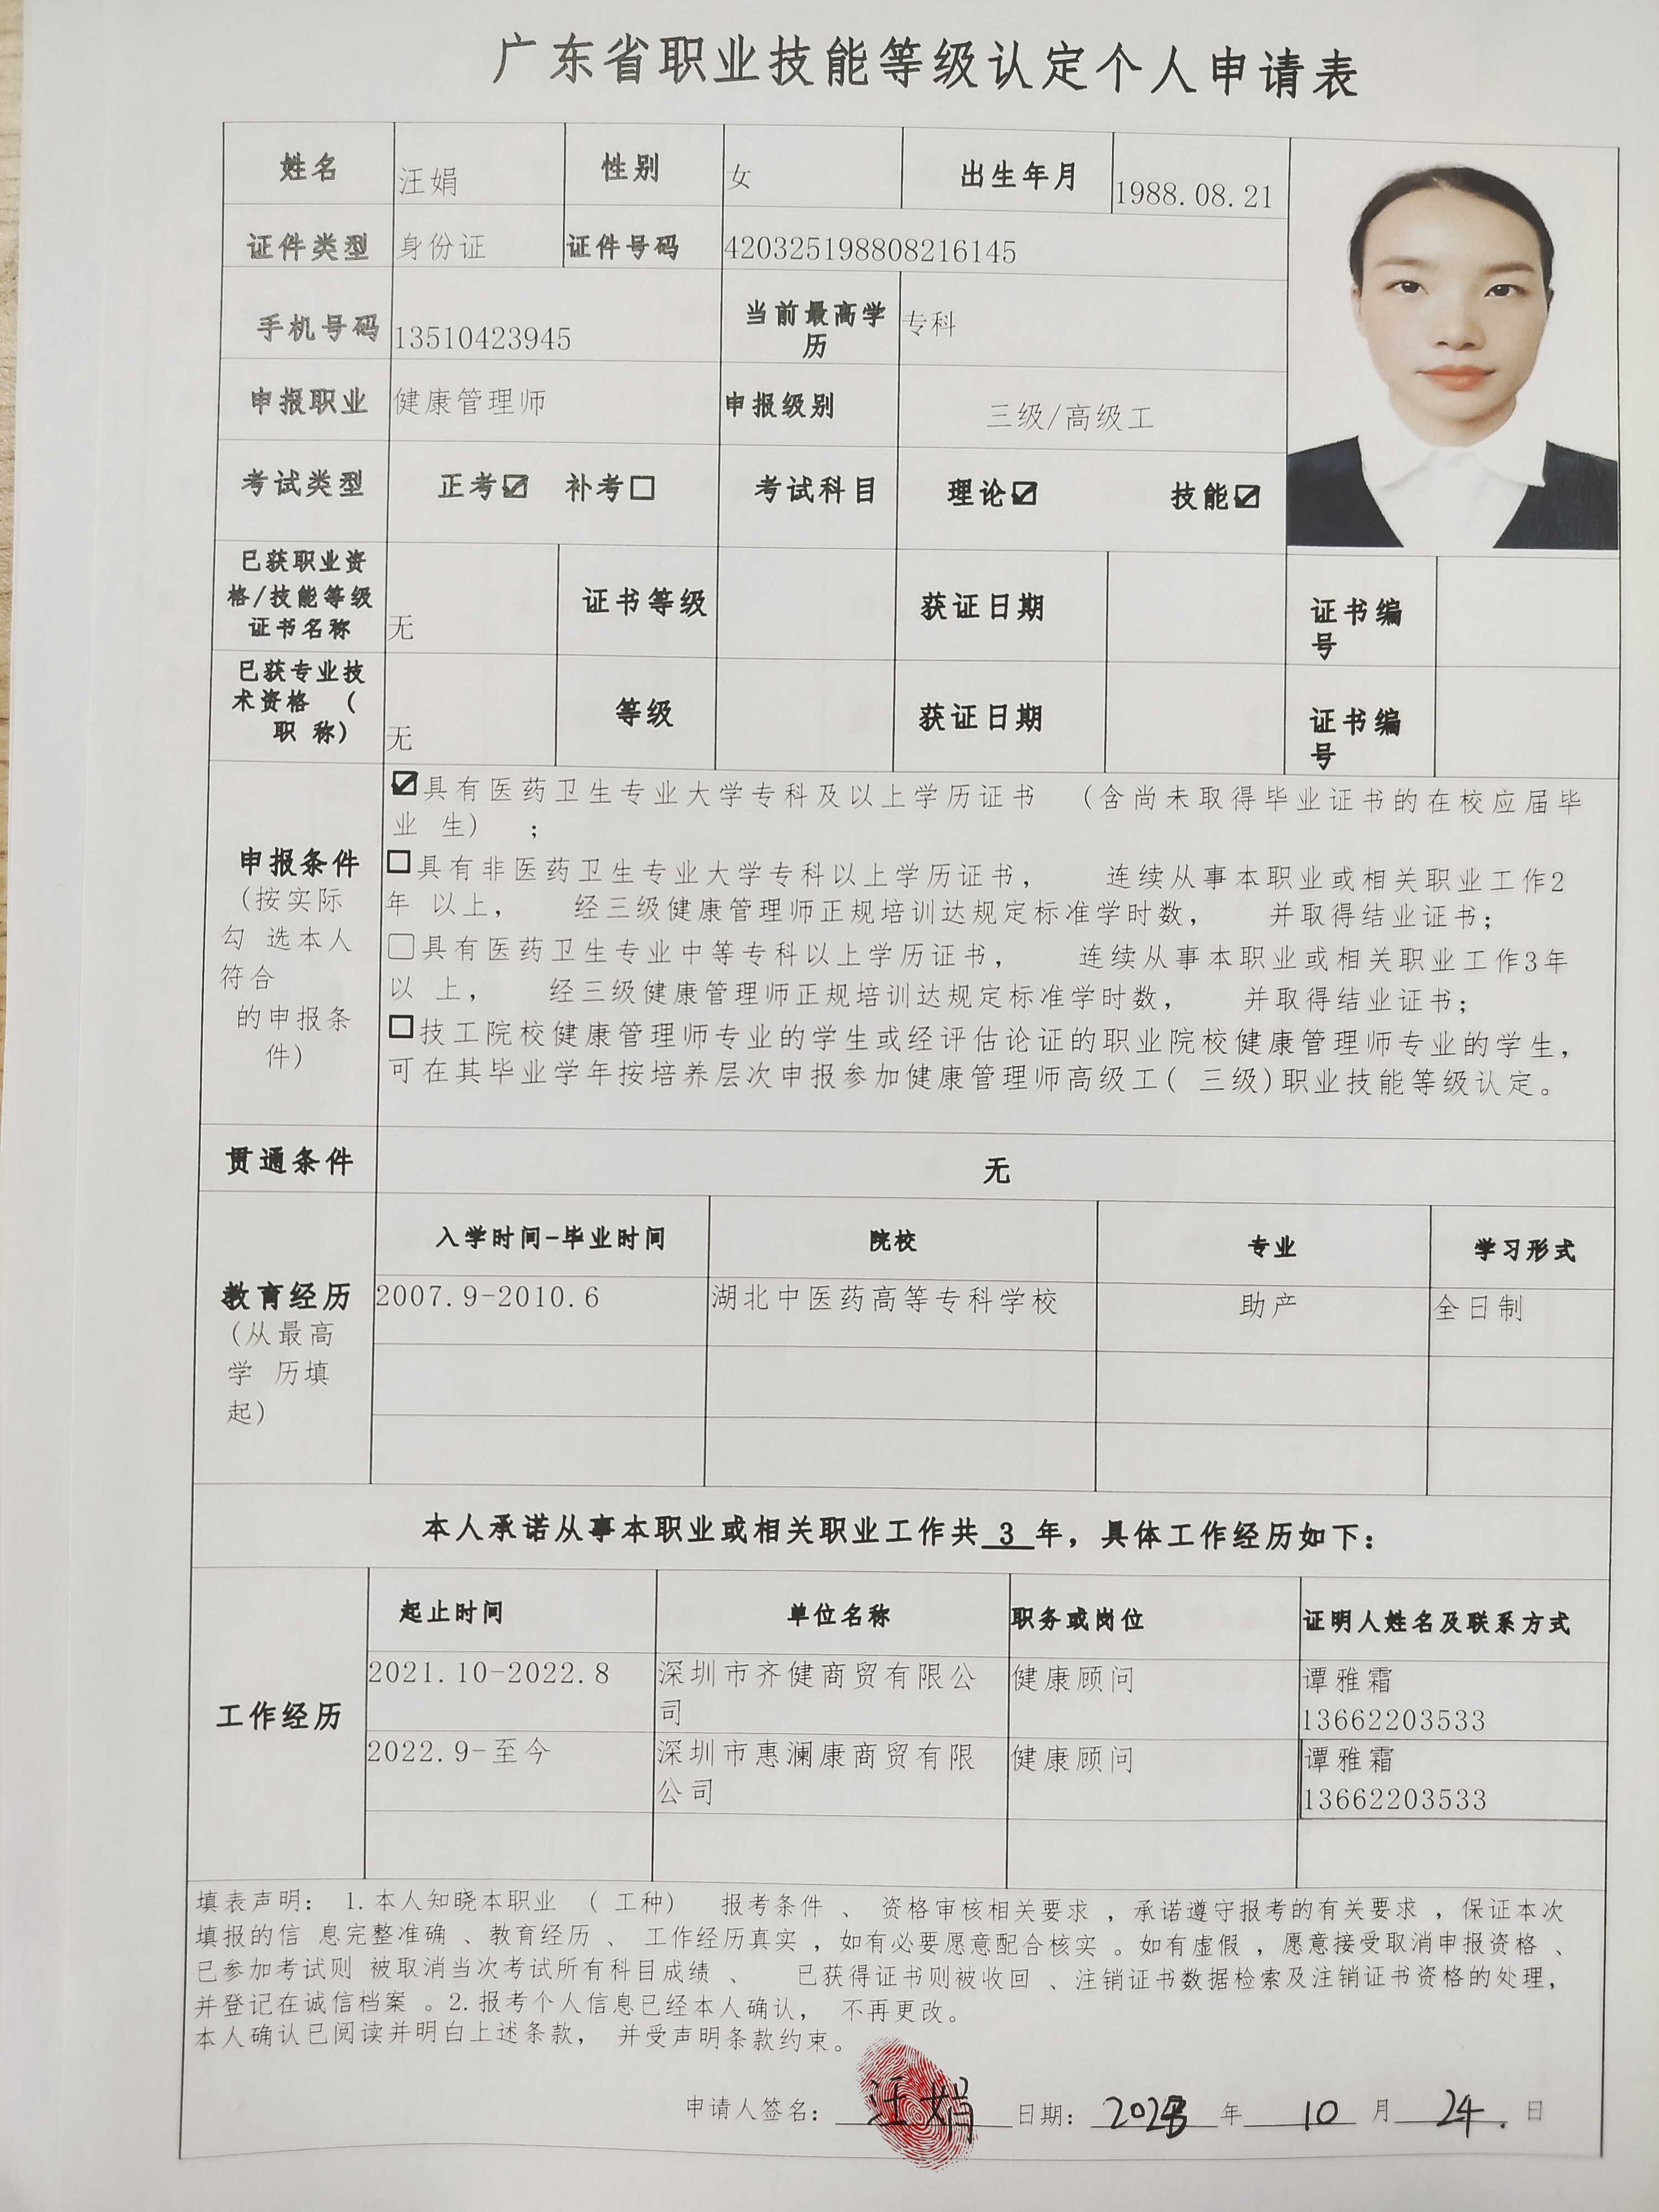 广东省职业技能等级认定个人申请表
姓名 汪娟 性别 女 出生年月 1988.08.21
证件类型 身份证 证件号码 420325198808216145
手机号码 13510423945 当前最高学历 专科
申报职业 健康管理师 申报级别 三级/高级工
考试类型 正考☑ 补考☐ 考试科目 理论☑ 技能☑
已获职业资
格/技能等级
证书名称 无 证书等级 获证日期 证书编
号
已获专业技
术资格 (
职 称) 无 等级 获证日期 证书编
号
申报条件
(按实际
勾 选本人
符合
的申报条
件)
☑具有医药卫生专业大学专科及以上学历证书 (含尚未取得毕业证书的在校应届毕
业 生) ;
☐具有非医药卫生专业大学专科以上学历证书, 连续从事本职业或相关职业工作2
年 以上, 经三级健康管理师正规培训达规定标准学时数, 并取得结业证书;
☐具有医药卫生专业中等专科以上学历证书, 连续从事本职业或相关职业工作3年
以 上, 经三级健康管理师正规培训达规定标准学时数, 并取得结业证书;
☐技工院校健康管理师专业的学生或经评估论证的职业院校健康管理师专业的学生,
可在其毕业学年按培养层次申报参加健康管理师高级工( 三级)职业技能等级认定。
贯通条件 无
教育经历
(从最高
学 历填
起)
入学时间-毕业时间 院校 专业 学习形式
2007.9-2010.6 湖北中医药高等专科学校 助产 全日制
本人承诺从事本职业或相关职业工作共 3 年，具体工作经历如下：
工作经历
起止时间 单位名称 职务或岗位 证明人姓名及联系方式
2021.10-2022.8 深圳市齐健商贸有限公
司 健康顾问 谭雅霜
13662203533
2022.9-至今 深圳市惠澜康商贸有限
公司 健康顾问 谭雅霜
13662203533
填表声明： 1.本人知晓本职业 （ 工种） 报考条件 、 资格审核相关要求 ，承诺遵守报考的有关要求 ，保证本次
填报的信 息完整准确 、教育经历 、 工作经历真实 ，如有必要愿意配合核实 。如有虚假 ，愿意接受取消申报资格 、
已参加考试则 被取消当次考试所有科目成绩 、 已获得证书则被收回 、注销证书数据检索及注销证书资格的处理，
并登记在诚信档案 。2.报考个人信息已经本人确认， 不再更改。
本人确认已阅读并明白上述条款， 并受声明条款约束。
申请人签名： 汪娟 日期： 2023 年 10 月 24 . 日